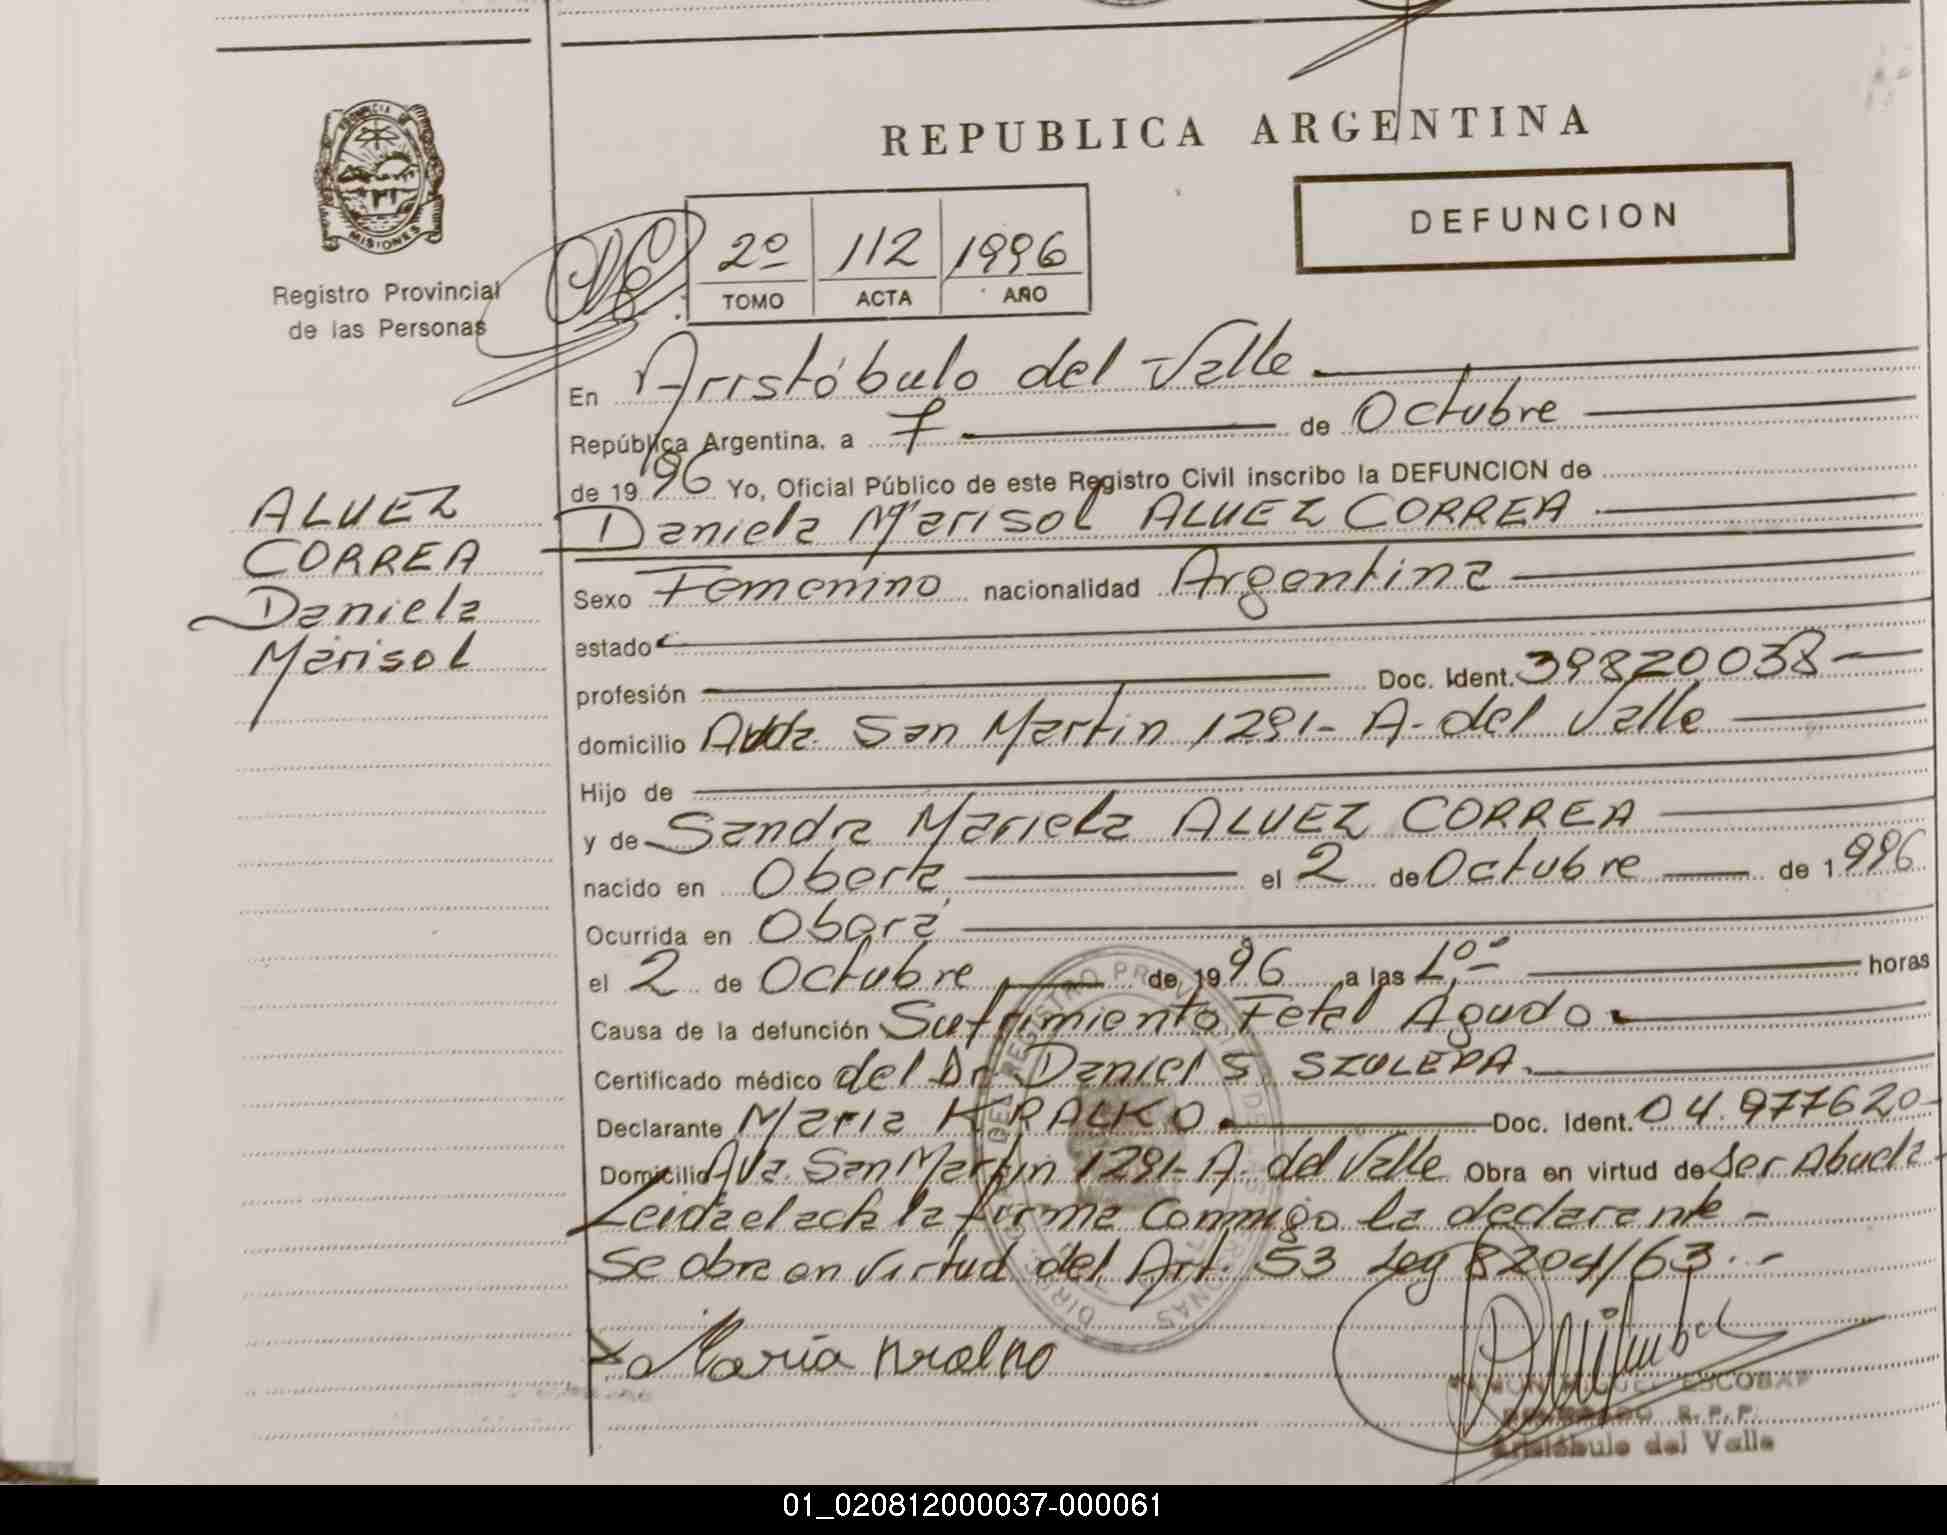 REPUBLICA ARGENTINA
DEFUNCION
PROVINCIA DE
MISIONES
Registro Provincial
de las Personas
2º 112 1996
TOMO ACTA AÑO
En Aristóbulo del Valle
República Argentina, a 7 de Octubre
de 1996 Yo, Oficial Público de este Registro Civil inscribo la DEFUNCION de
Daniela Marisol ALVEZ CORREA
ALVEZ
CORREA
Daniela
Marisol
Sexo Femenino nacionalidad Argentina
estado
profesión Doc. Ident. 39820038
domicilio Avda. San Martin 1291- A. del Valle
Hijo de
y de Sandra Mariela ALVEZ CORREA
nacido en Oberá el 2 de Octubre de 1996
Ocurrida en Oberá
el 2 de Octubre de 1996 a las horas
Causa de la defunción Sufrimiento Fetal Agudo.
Certificado médico del Dr. Daniel S. SZULEPA.
Declarante Maria KRALKO. Doc. Ident. 04.977620
Domicilio Ava. San Martin 1291- A. del Valle Obra en virtud de Ser Abuela
Leida el acta la firma Conmigo la declarante -
Se obra en virtud del Art. 53 Ley 8204/63.-
Maria Kralko
ESCOBAR
R.P.P.
Aristóbulo del Valle
01_020812000037-000061